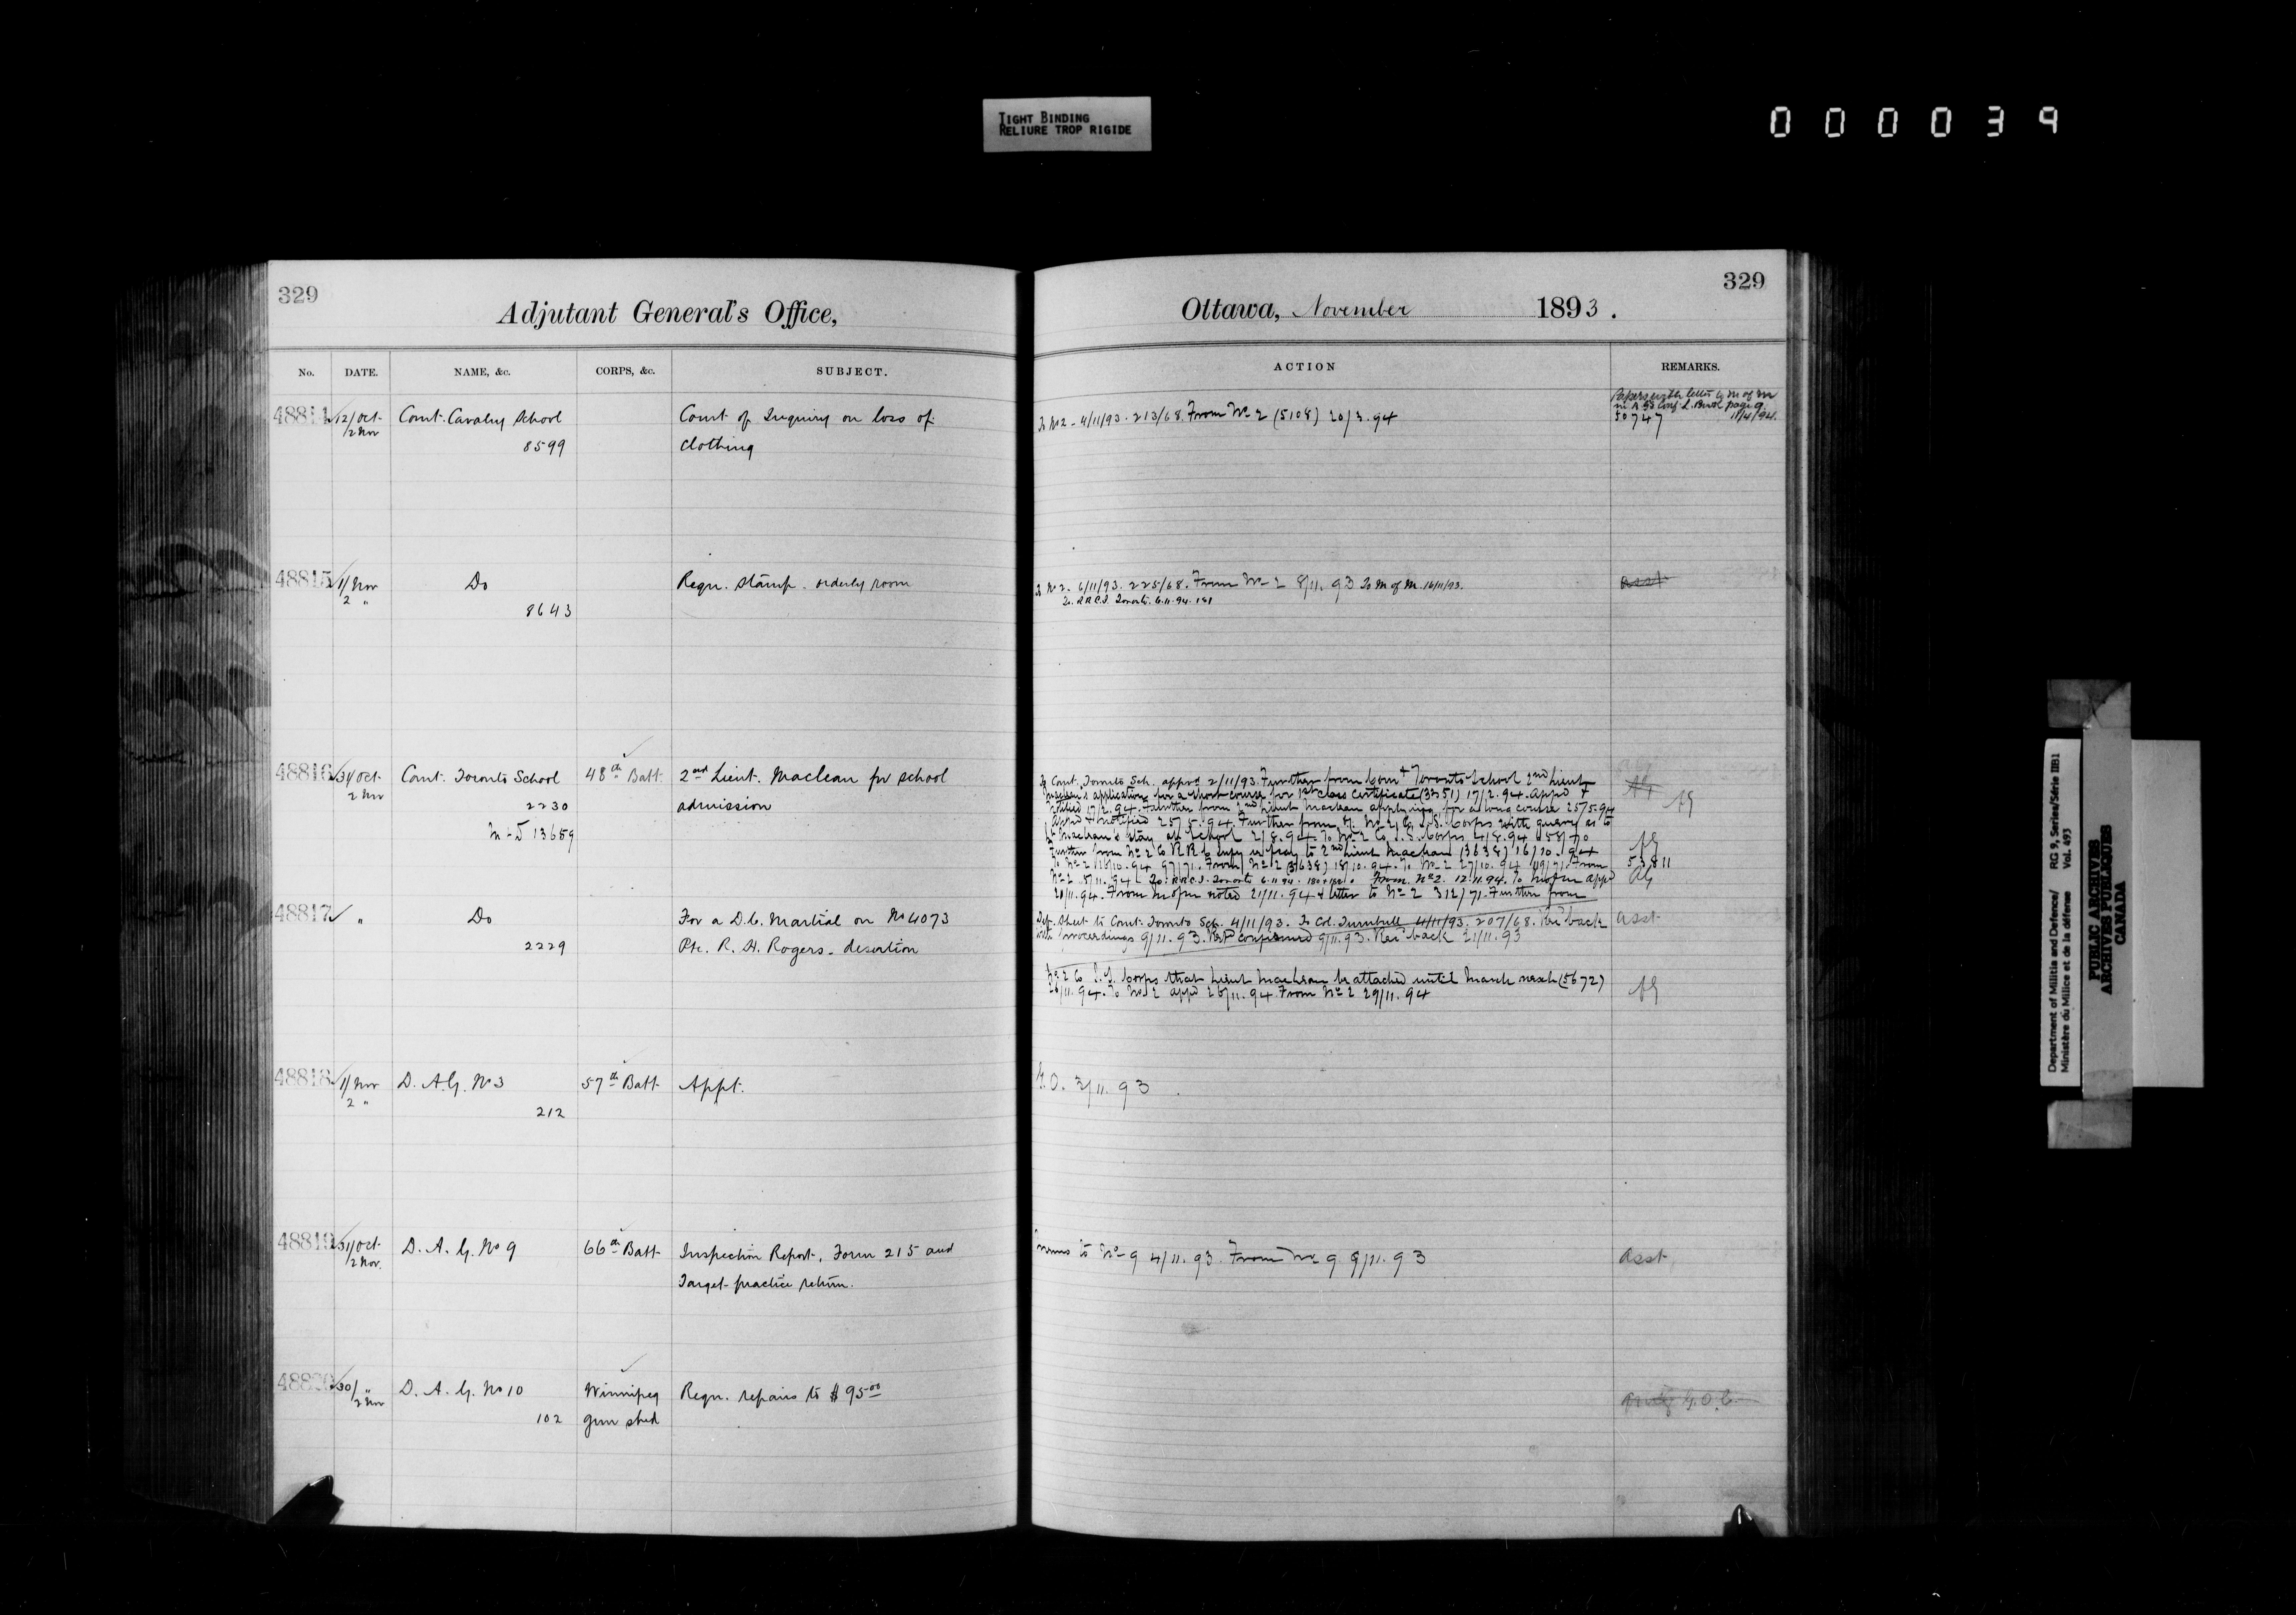 TIGHT BINDING
RELIURE TROP RIGIDE
000039
329
Adjutant General's Office,
No. DATE. NAME, &c. CORPS, &c. SUBJECT.
48814 12/Oct Comt. Cavalry School Court of Inquiry on loss of
2 Nov
8599 clothing
48815 1/Nov Do Reqn. Stamp. orderly room
2 "
8643
48816 31/Oct Comt. Toronto School 48th Batt. 2nd Lieut. Maclean for school
2 Nov 2230 admission
13659
48817 " Do For a D.C. Martial on No 4073
2229 Pte. R. H. Rogers - desertion
48818 1/Nov D. A. G. No 3 57th Batt Appt.
2 "
212
48819 31/Oct D. A. G. No 9 66th Batt Inspection Report, Form 215 and
2 Nov. Target practice return.
48820 30/ " D. A. G. No 10 Winnipeg Reqn. repairs to $95.00
2 Nov
102 gun shed
329
Ottawa, November 1893.
ACTION REMARKS.
Papers with letter to M of M
page 9
To No 2 - 4/11/93. 213/68. From No 2 (5108) 20/3.94 50747 11/4/94.
To No 2. 6/11/93. 225/68. From No 2 8/11.93 To M of M. 16/11/93. asst
To R.R.C.I. Toronto. 6.11.94. 181
To Comt. Toronto Sch. apprd 2/11/93. Further from Comt Toronto School 2nd Lieut
Maclean's application for a short course for 1st class certificate (3051) 17/2.94. Appd &
notified 17/2.94. Further from 2nd Lieut Maclean applying for a long course 25/5.94
Appd & notified 25/5.94. Further from No 2 Co I.S. Corps with query as to
Lt Maclean's stay at School 2/8.94. To No 2 Co I.S. Corps 4/8.94 58/70
Further from No 2 Co R.R. to pay to 2nd Lieut Maclean (3638) 16/10.94
To No 2 18/10.94 97/71. From No 2 (3638) 18/10.94. To No 2 27/10.94 119/71. From 53811
No 2 5/11.94 To R.R.C.I. Toronto 6.11.94. From No 2. 12.11.94. To M of M appd AG
20/11.94. From M of M noted 21/11.94 & letter to No 2 312/71. Further from
Def. Sheet to Comt. Toronto Sch. 4/11/93. To Col. Turnbull 4/11/93. 207/68. Rec'd back asst
with proceedings 9/11.93. confirmed 9/11.93. Rec'd back 21/11.93
No 2 Co I.S. Corps that Lieut Maclean be attached until March next (5672)
26/11.94. To No 2 appd 26/11.94. From No 2 29/11.94
G.O. 3/11.93
Memo to No 9 4/11.93. From No 9 9/11.93 asst
G.O.C.
Department of Militia and Defence/ RG 9, Series/Série IIB1
Ministère du Milice et de la défense Vol. 493
PUBLIC ARCHIVES
ARCHIVES PUBLIQUES
CANADA